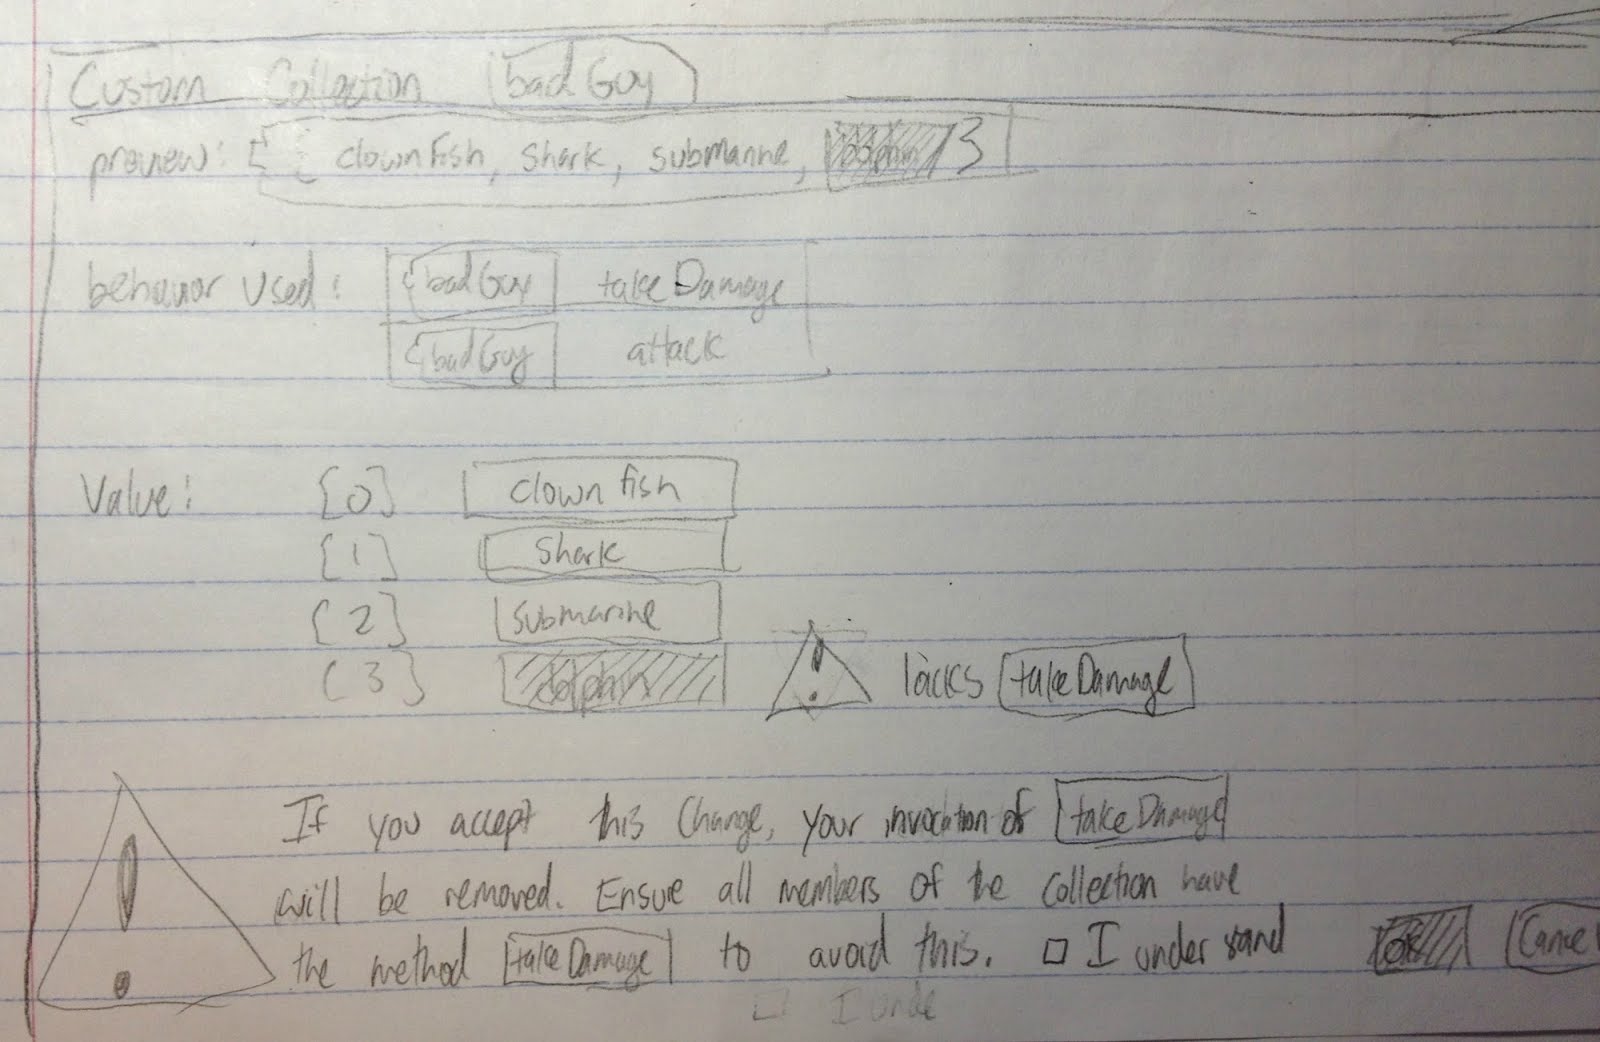 Custom Collection badGuy
preview: [ { clownfish, shark, submarine, dolphin } ]
behavior used: { badGuy takeDamage
{ badGuy attack
Value: [0] clownfish
[1] Shark
[2] submarine
[3] dolphin ! lacks takeDamage
! If you accept this change, your invocation of takeDamage
will be removed. Ensure all members of the collection have
the method takeDamage to avoid this. □ I understand OK Cancel
□ I unde